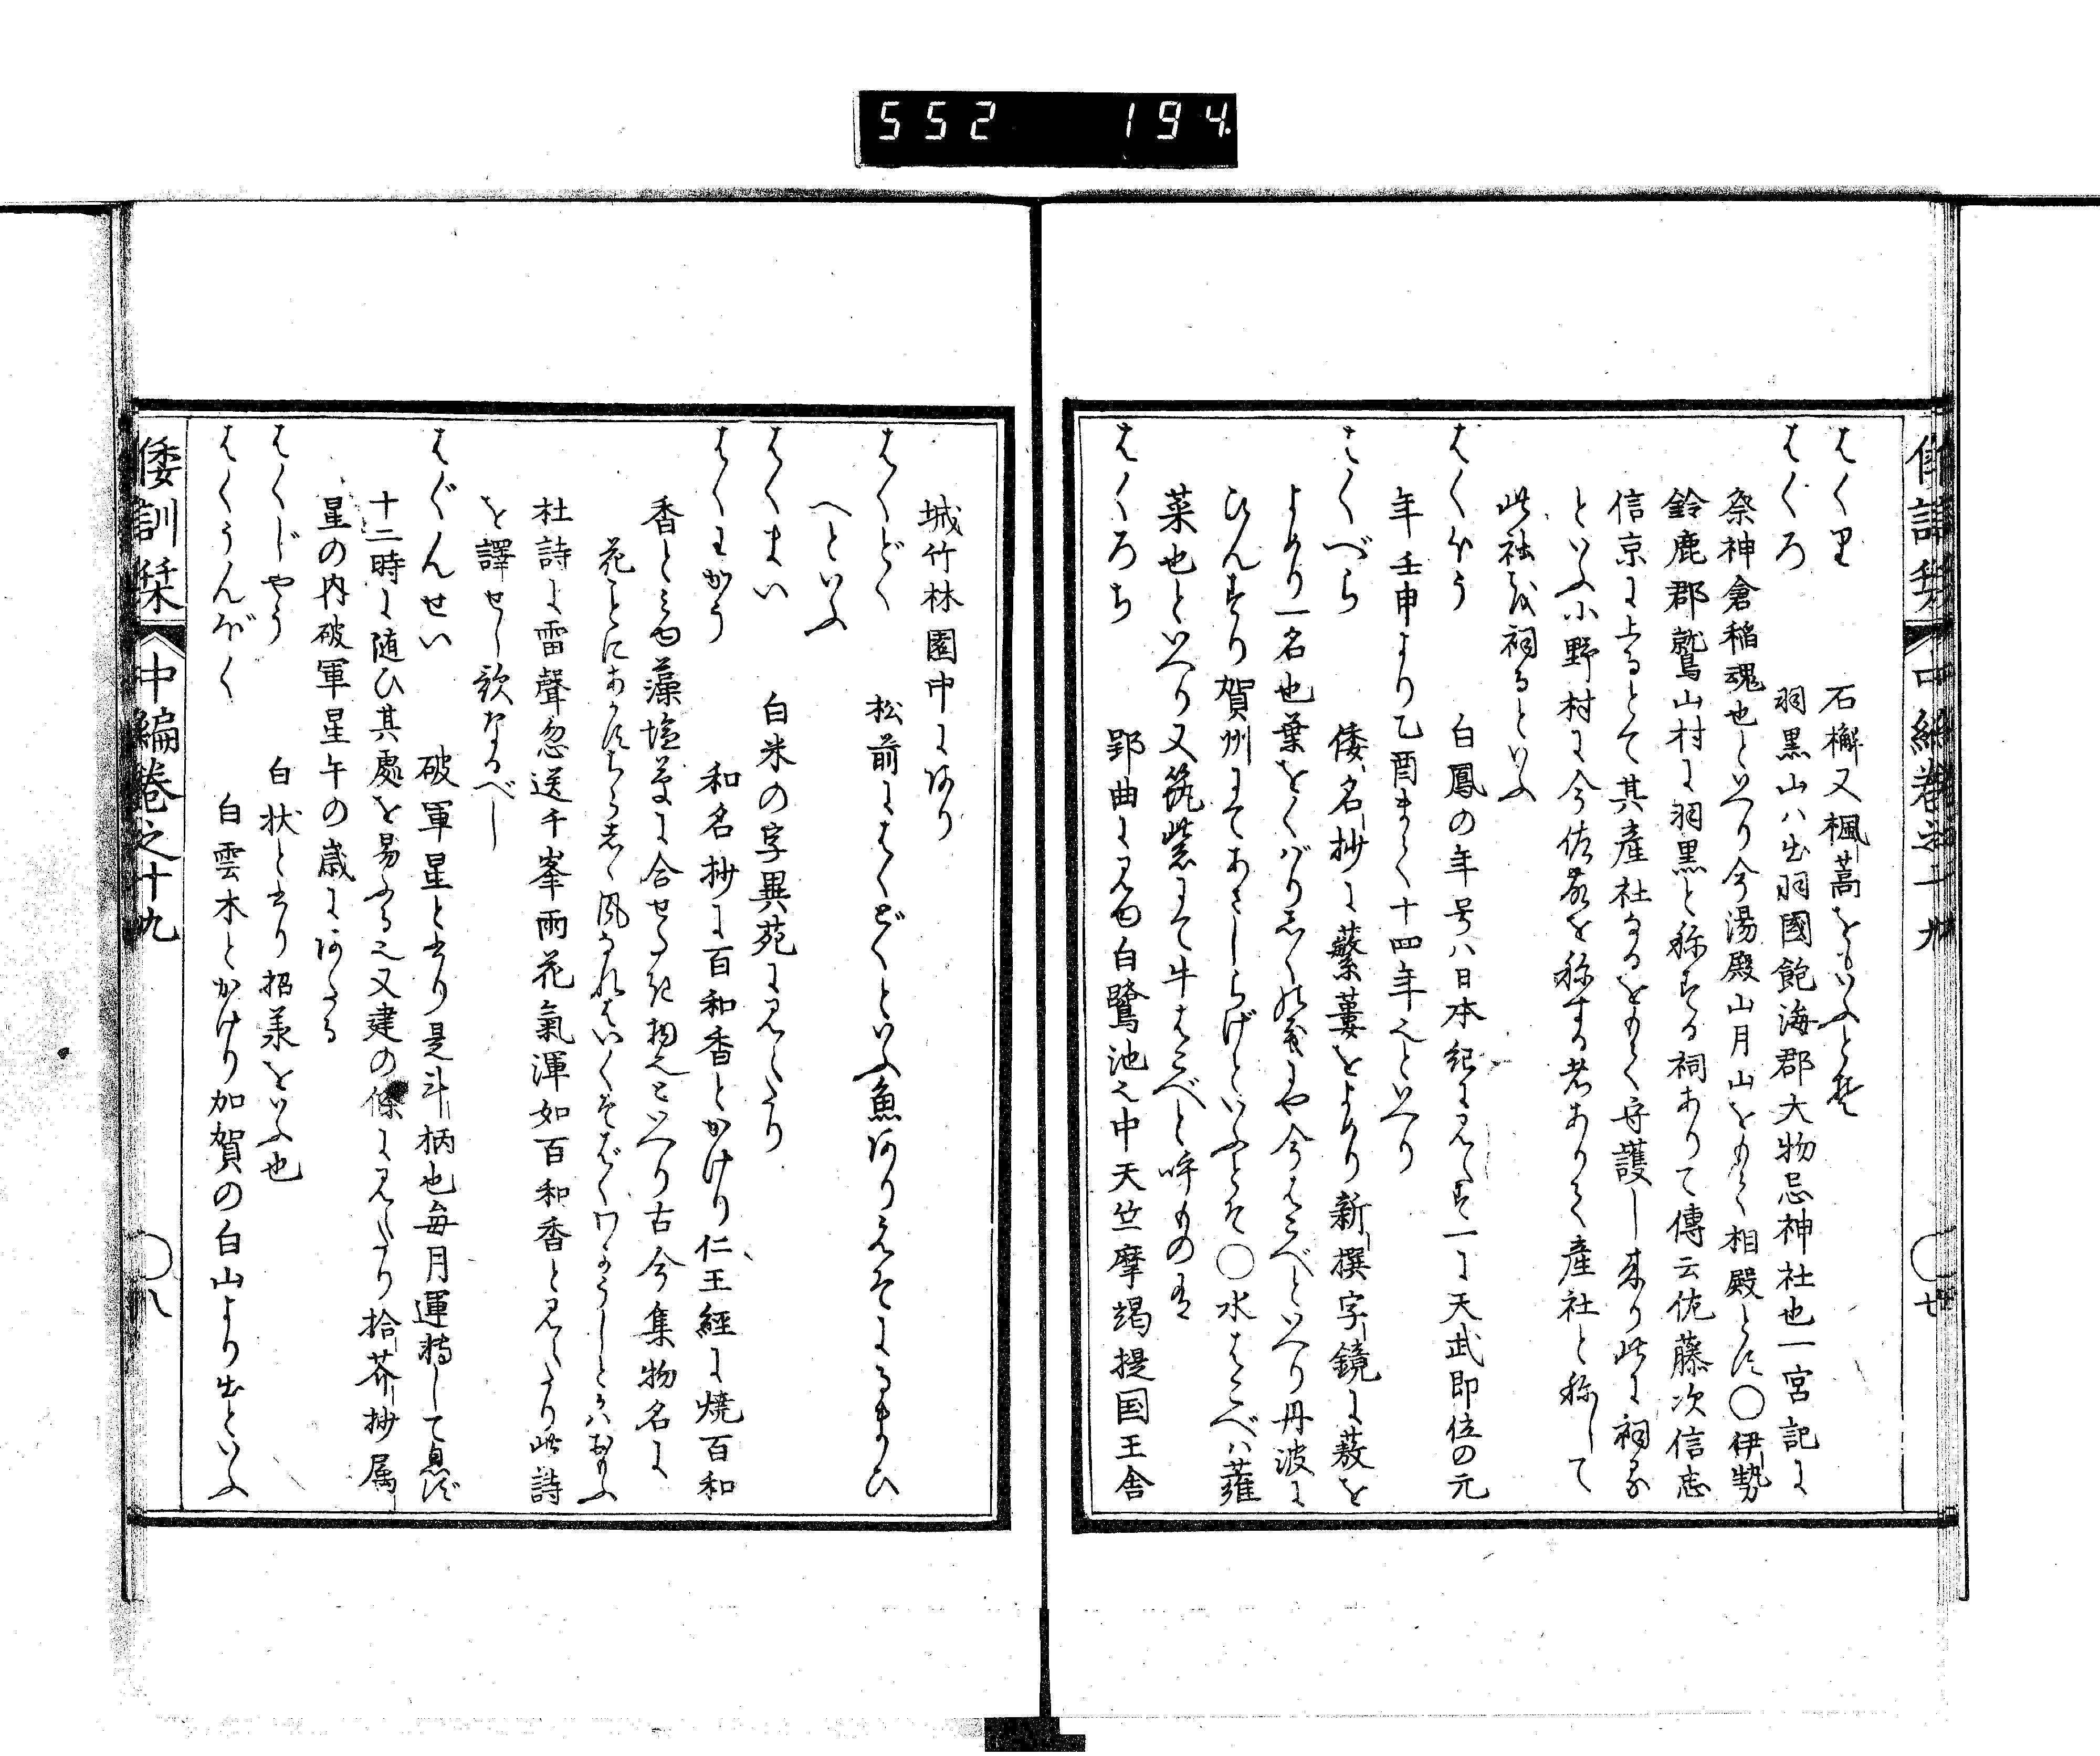 552 194
はくり 石檞又楓蒿をもいふとそ
はくろ 羽黒山ハ出羽國飽海郡大物忌神社也一宮記に
祭神倉稲魂也といへり今湯殿山月山をもて相殿とす〇伊勢
鈴鹿郡鷲山村に羽黒と称する祠ありて傳云佐藤次信忠
信京に上るとて其産社なるをもて守護し来り此に祠る
といふ小野村に今佐藤を称する者ありて産社と称して
此社を祠るといふ
はくほう 白鳳の年号ハ日本紀に見えす一に天武即位の元
年壬申より乙酉まて十四年也といへり
はくべら 倭名抄に蘩蔞をよめり新撰字鏡に𦽳を
よめり一名也葉をくばりしく義にや今はこべといへり丹波に
ひんずり賀州にてあさしらげといふとそ〇水はこべハ蕹
菜也といへり又筑紫にて牛はこべと呼もの有
はくろち 郢曲に見ゆ白鷺池也中天竺摩竭提国王舎
城竹林園中にあり
はくどく 松前にはくどくといふ魚ありえそにるまひ
へといふ
はくまい 白米の字異苑に見えたり
はくわかう 和名抄に百和香とかけり仁王經に燒百和
香と見ゆ藻塩草に合せたき物也といへり古今集物名に
花ことにあかすちらしゝ風なれはいくそばくわかうしとかハおもふ
杜詩に雷聲忽送千峯雨花氣渾如百和香と見えたり此詩
を譯せし歌なるべし
はぐんせい 破軍星と書り是斗柄也毎月運轉して息ず
十二時に随ひ其處を易ふる也又建の條に見えたり拾芥抄属
星の内破軍星午の歳にあたる
はくじやう 白状と書り招承をいふ也
はくうんぼく 白雲木とかけり加賀の白山より出といふ
倭訓栞 中編巻之十九 〇八